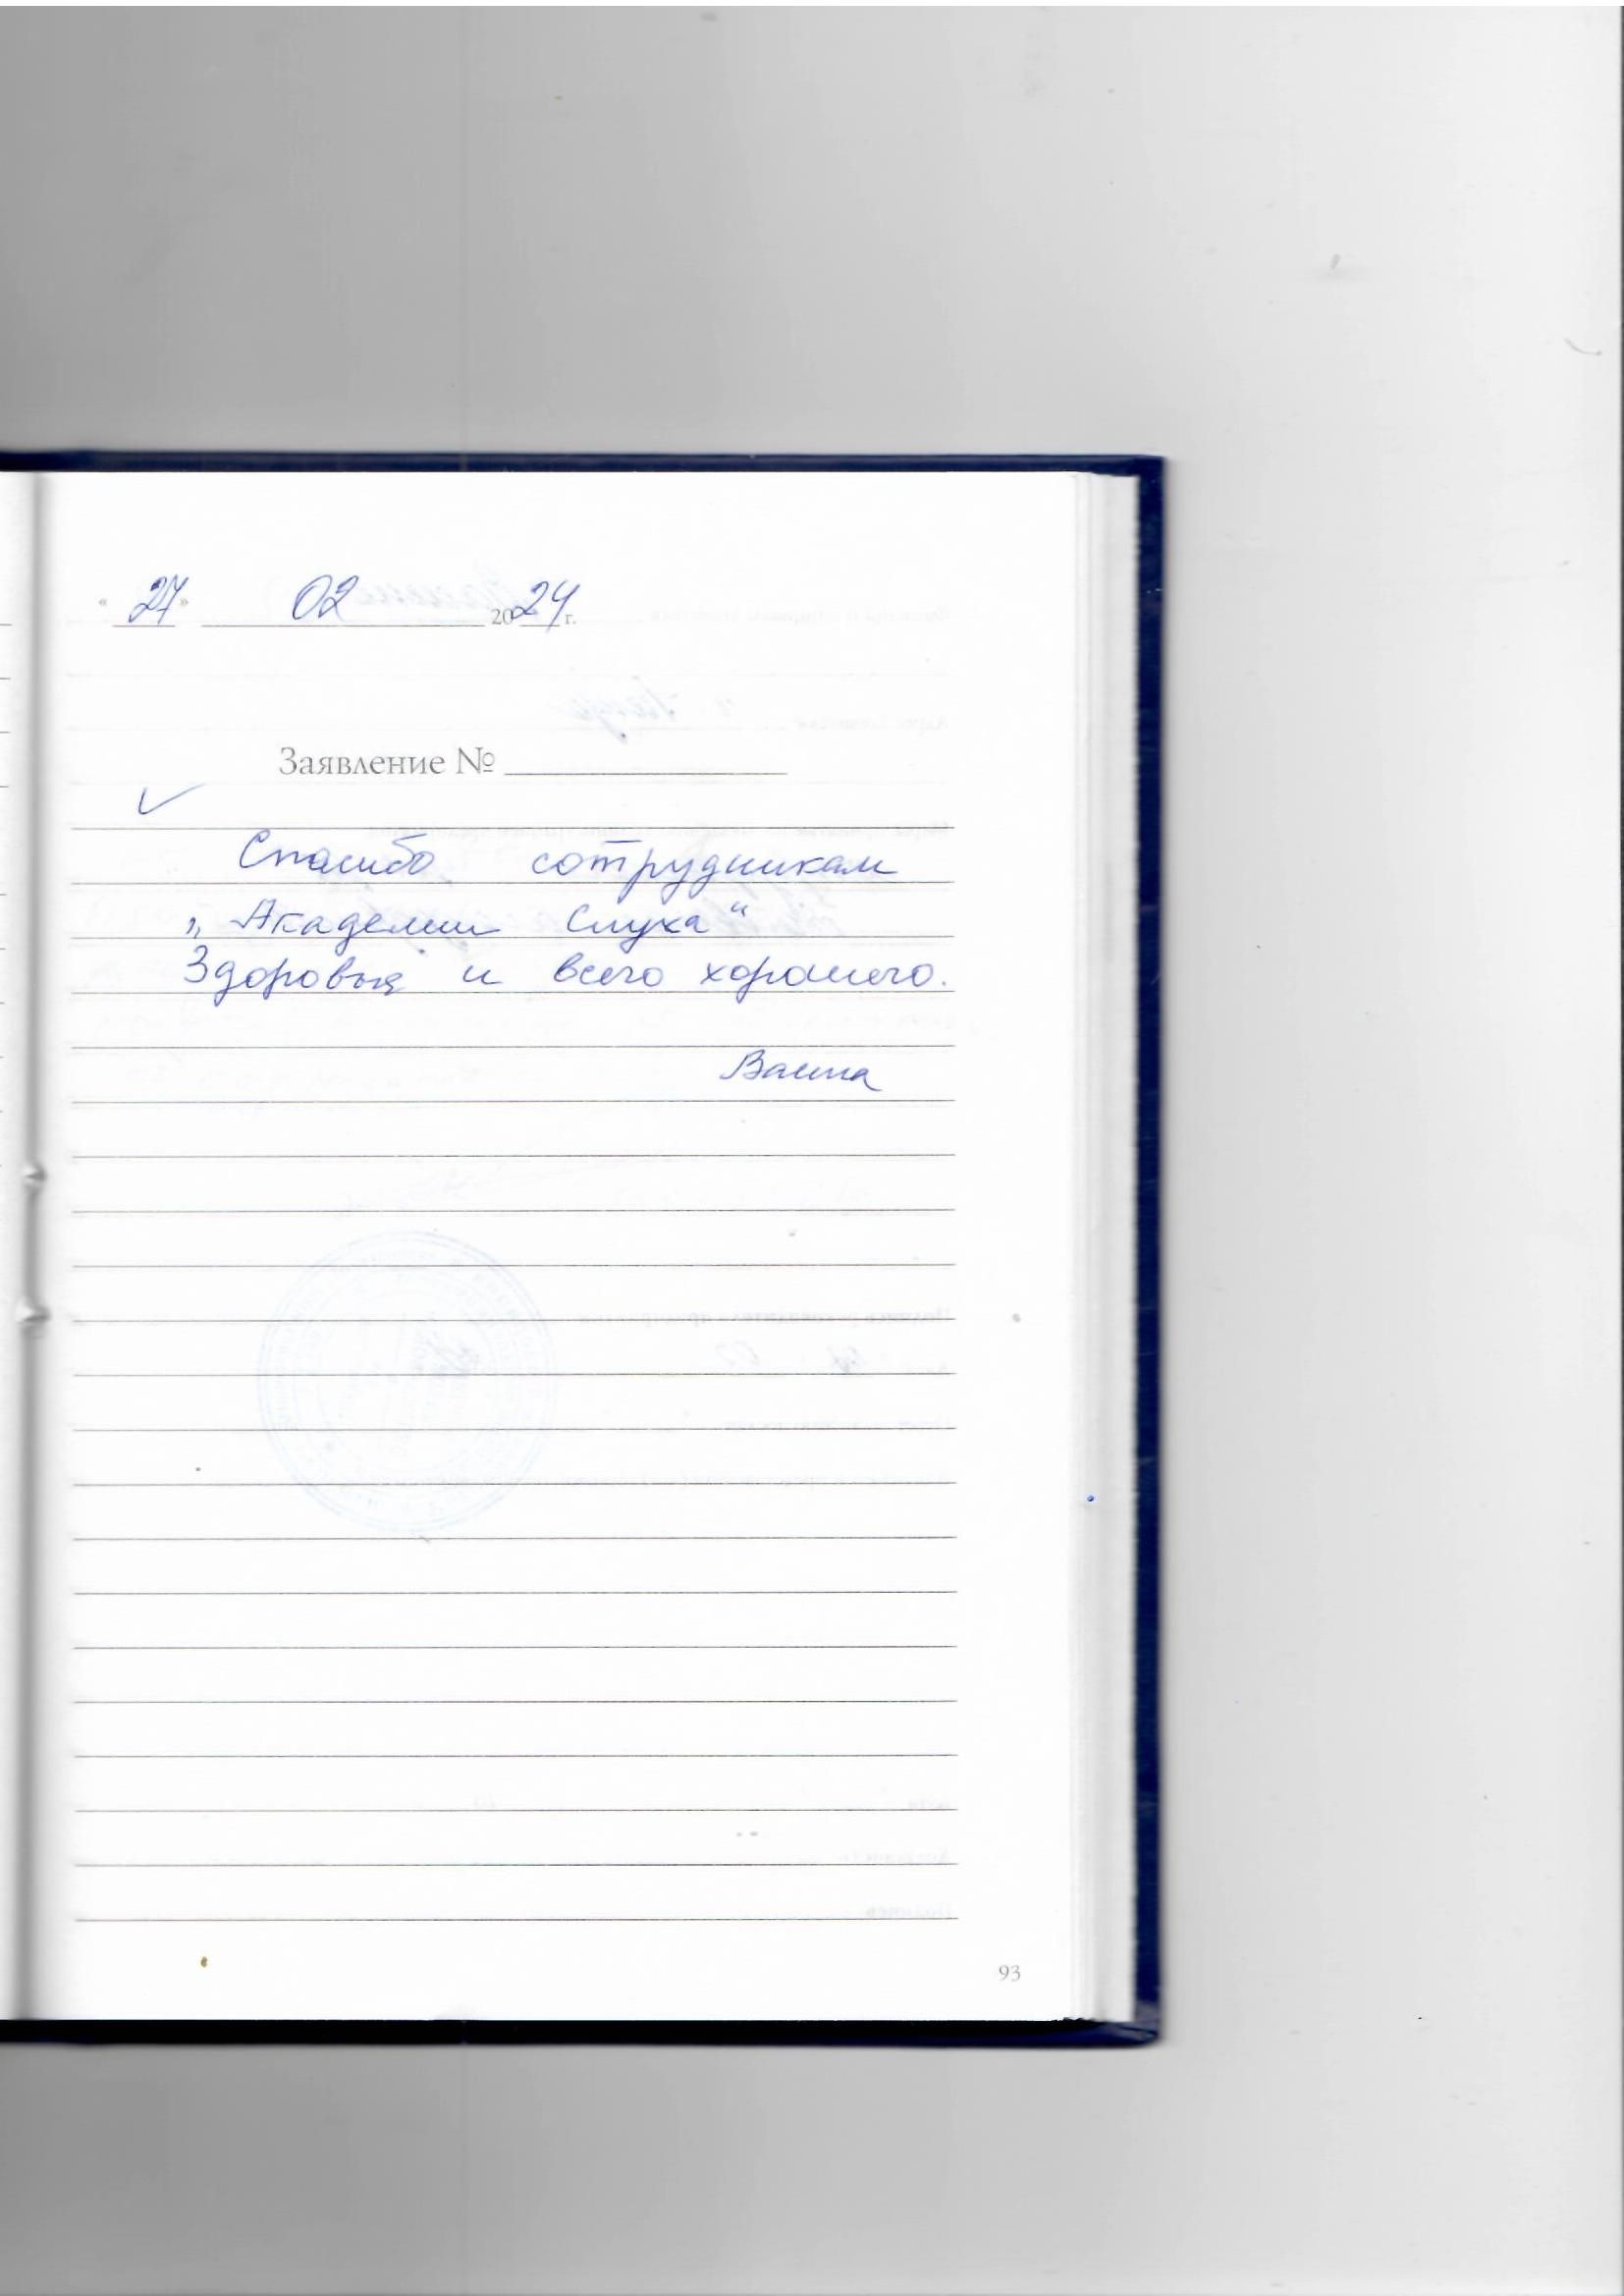 « 27 » 02 2024 г.
Заявление №
Спасибо сотрудникам
„Академии Слуха“
Здоровья и всего хорошего.
93